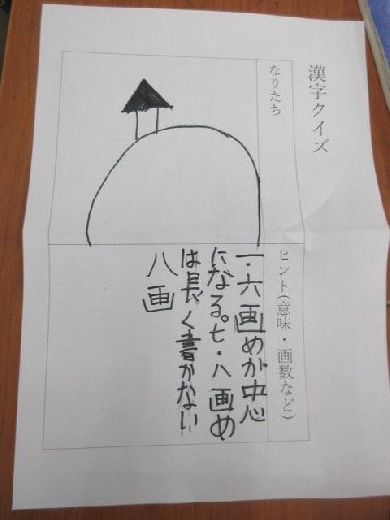 漢字クイズ
なりたち
ヒント(意味・画数など)
一・六画めが中心
になる。七・八画め
は長く書かない
八画